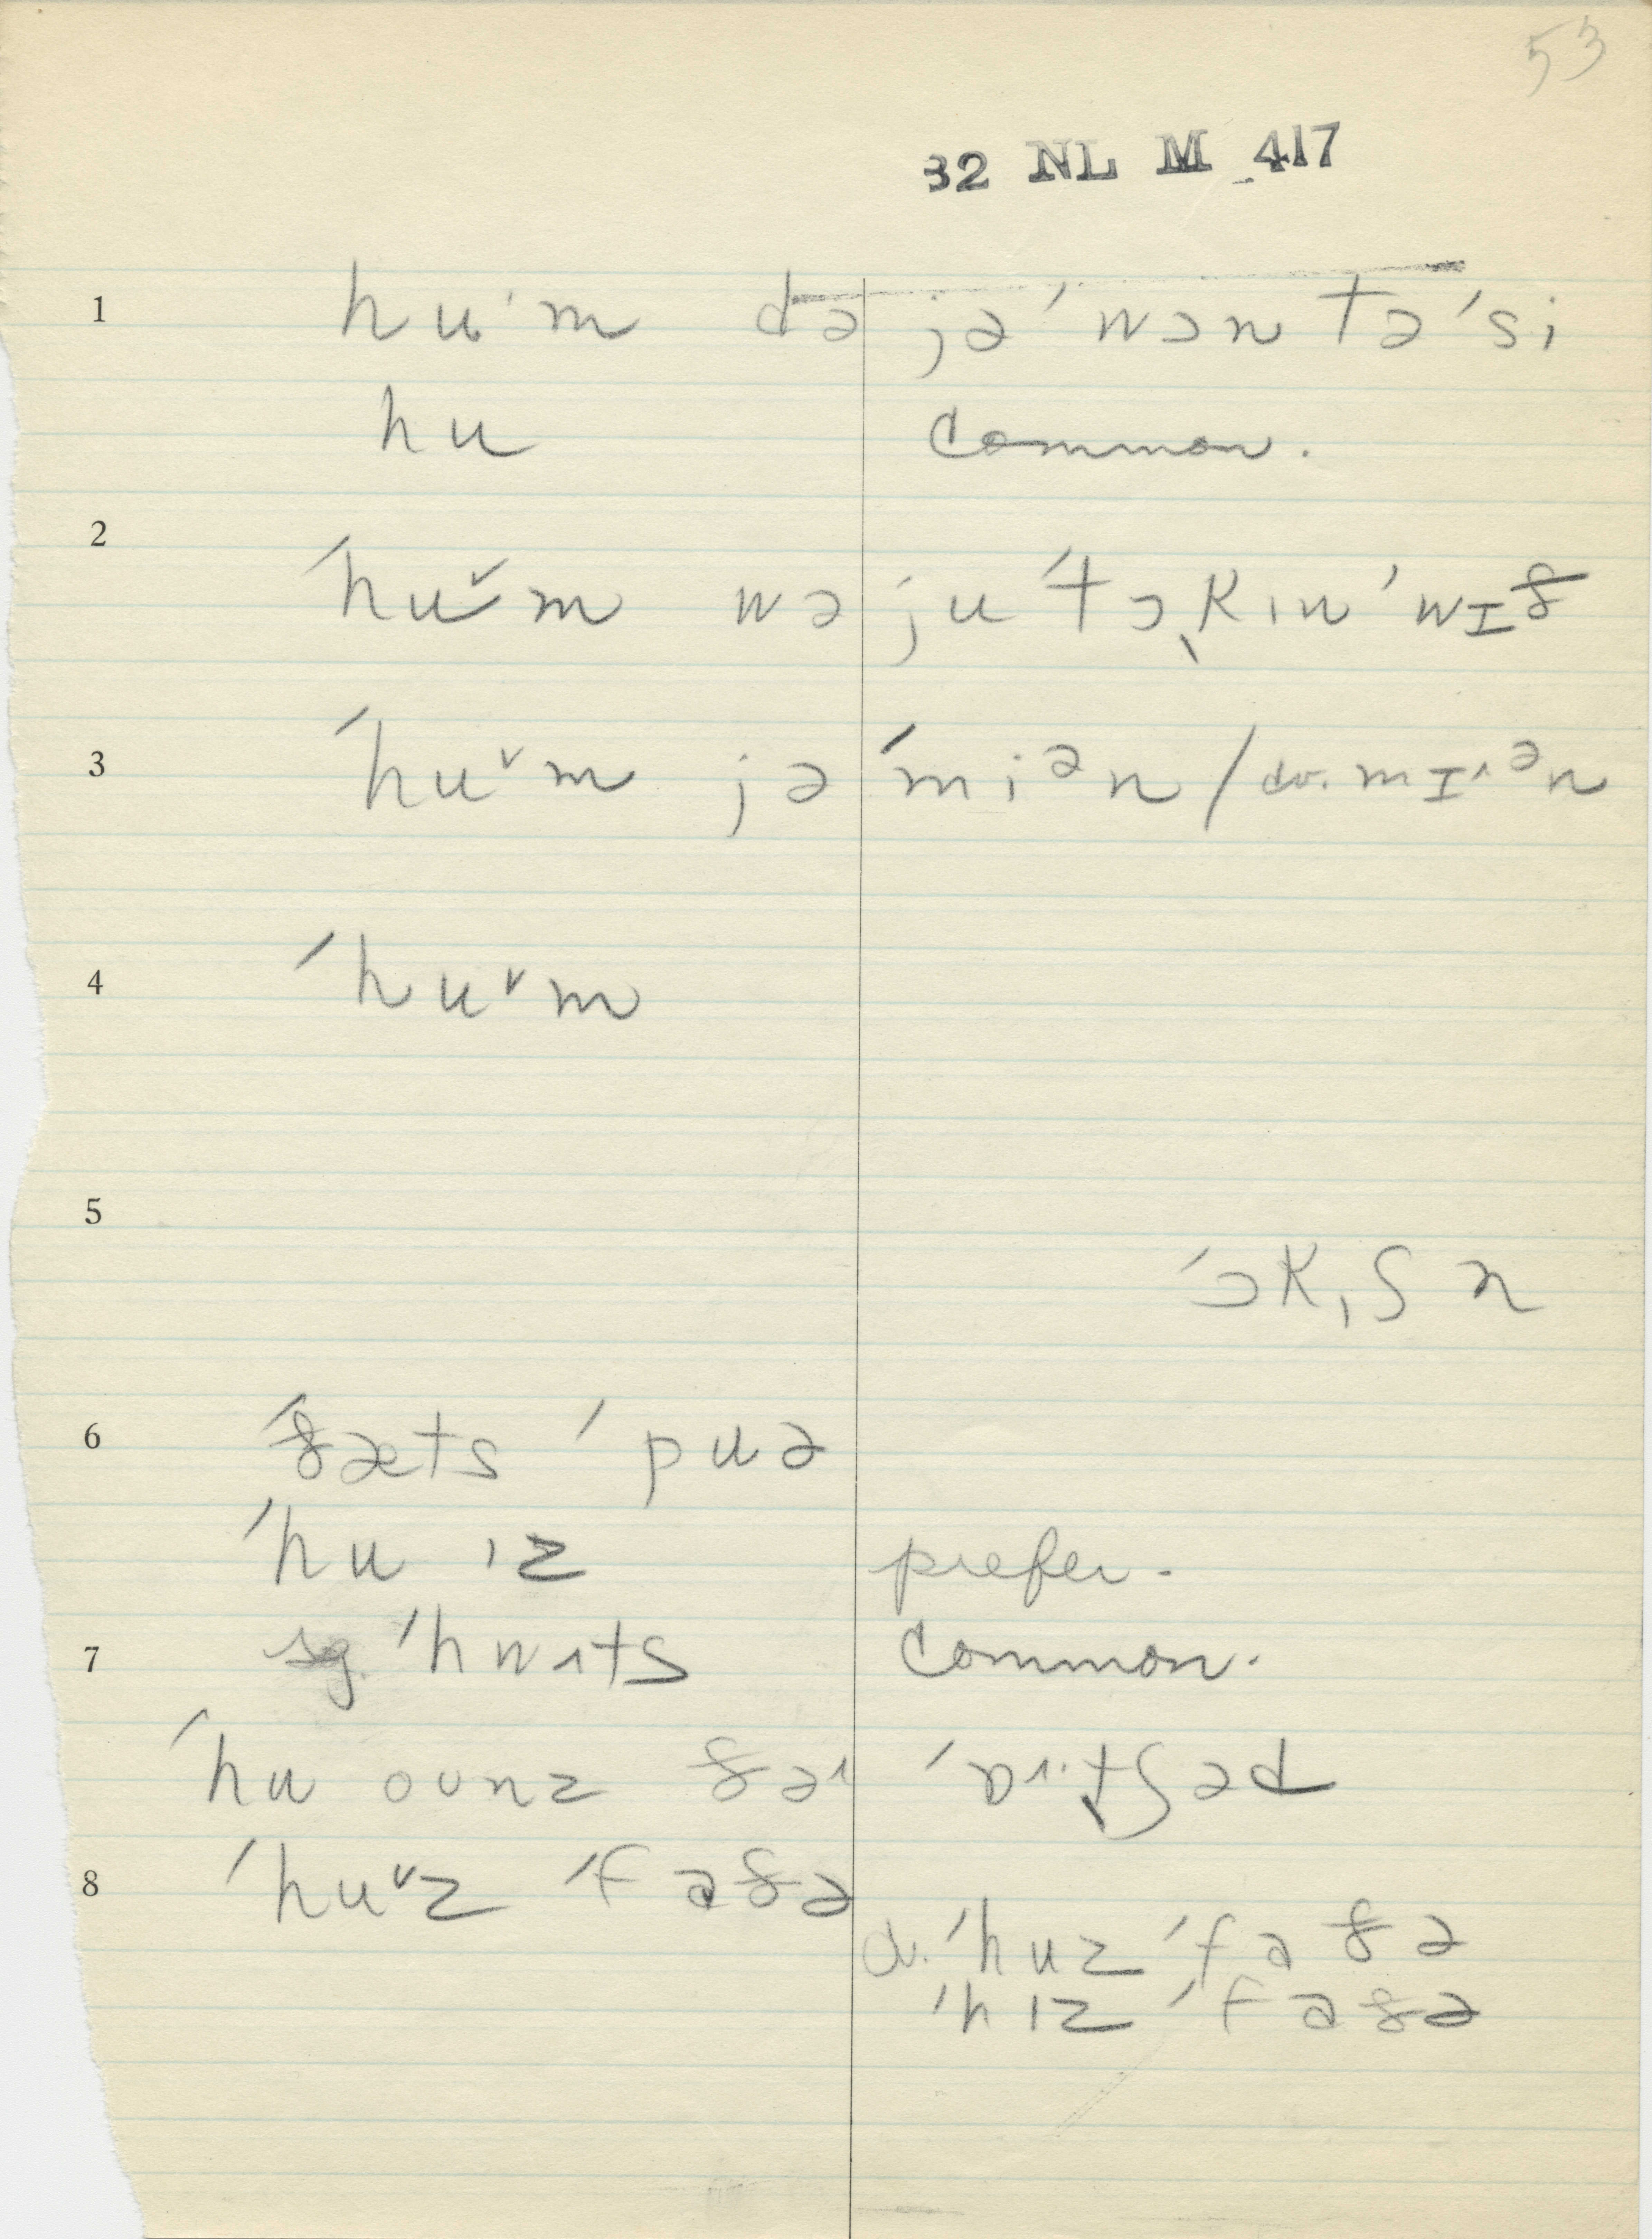 53
32 NL M 417
1 hu·m də jə ˈwɔn tə ˈsi
hu common.
2 ˈhuˇm wə ju ˈtɔ̖kɪn ˈwɪð
3 ˈhuˇm jə ˈmiᵊn / cv. mɪ˄ᵊn
4 ˈhuˇm
5
ˈɔk,ʃn
6 ˈðæts ˈpuə
ˈhu ɪz prefer.
7 sg. ˈhwɪts common.
ˈhu oʊnz ðə˄ ˈɒ˄·tʃəd
8 ˈhuˇz ˈfaðə
cv. ˈhuz ˈfaðə
ˈhɪz ˈfaðə